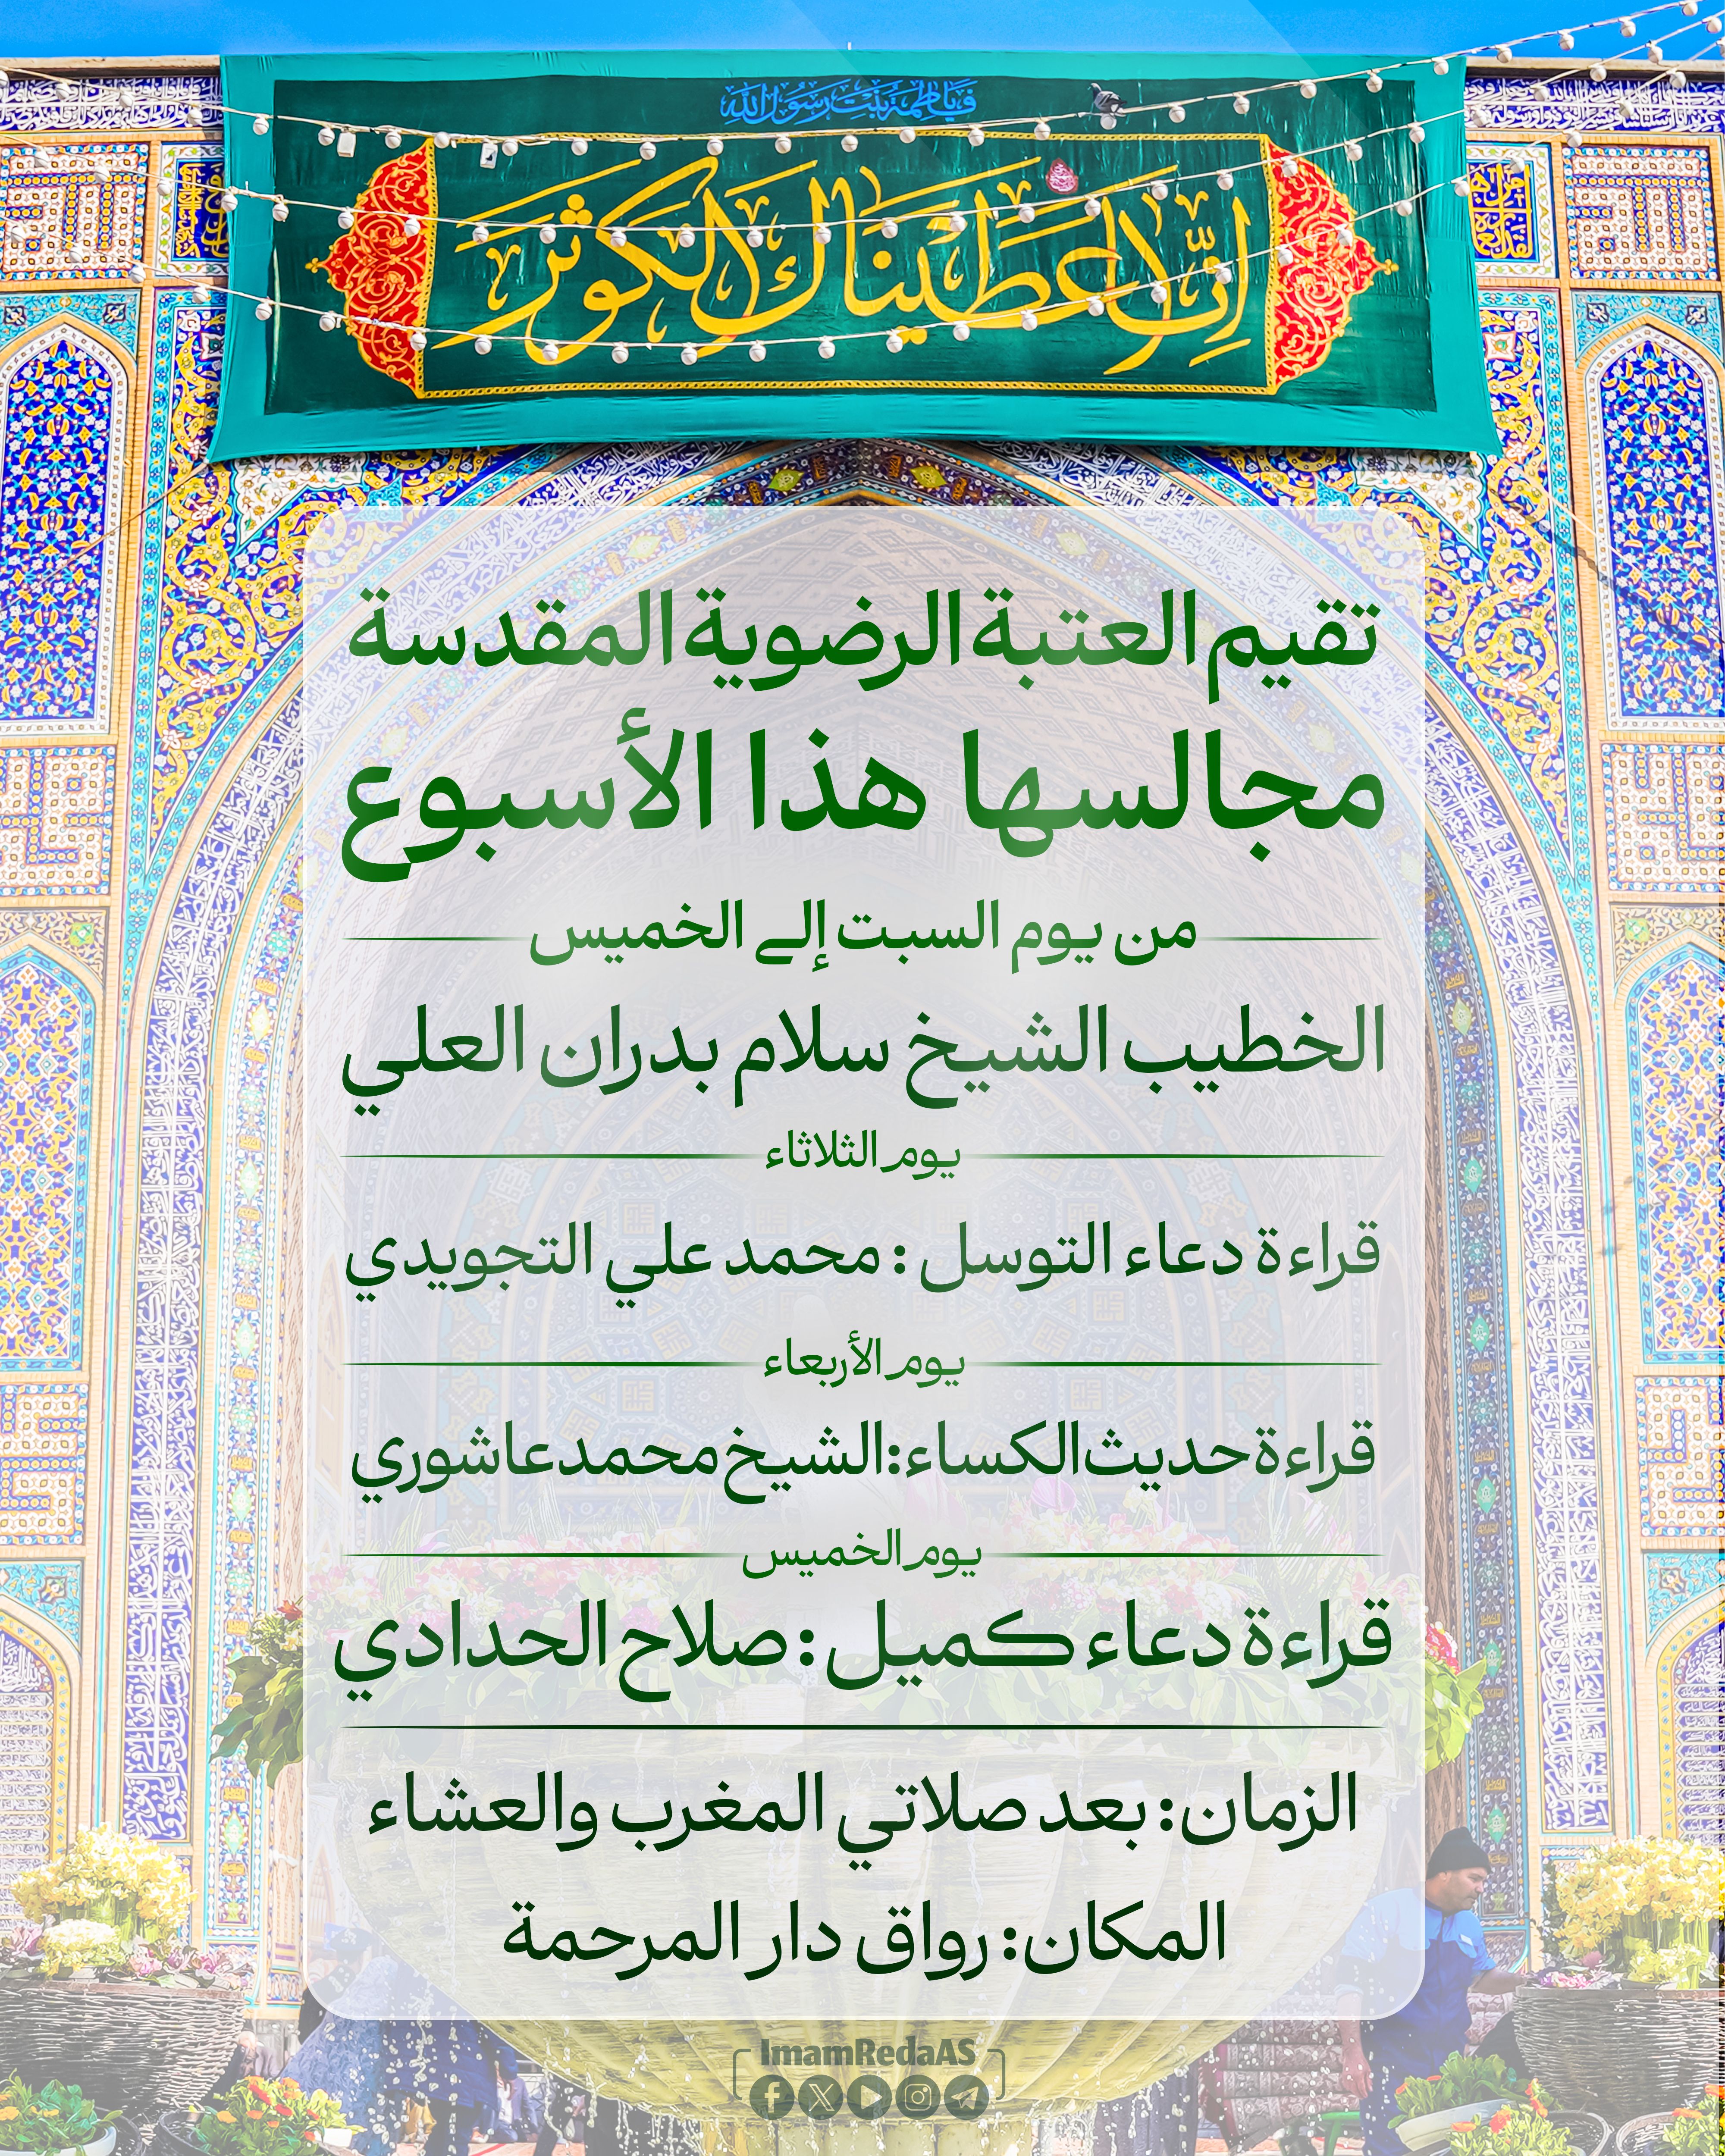 يا فاطمة بنت رسول الله
إنا أعطيناك الكوثر
تقيم العتبة الرضوية المقدسة
مجالسها هذا الأسبوع
من يوم السبت إلى الخميس
الخطيب الشيخ سلام بدران العلي
يوم الثلاثاء
قراءة دعاء التوسل : محمد علي التجويدي
يوم الأربعاء
قراءة حديث الكساء: الشيخ محمد عاشوري
يوم الخميس
قراءة دعاء كميل : صلاح الحدادي
الزمان: بعد صلاتي المغرب والعشاء
المكان: رواق دار المرحمة
ImamRedaAS